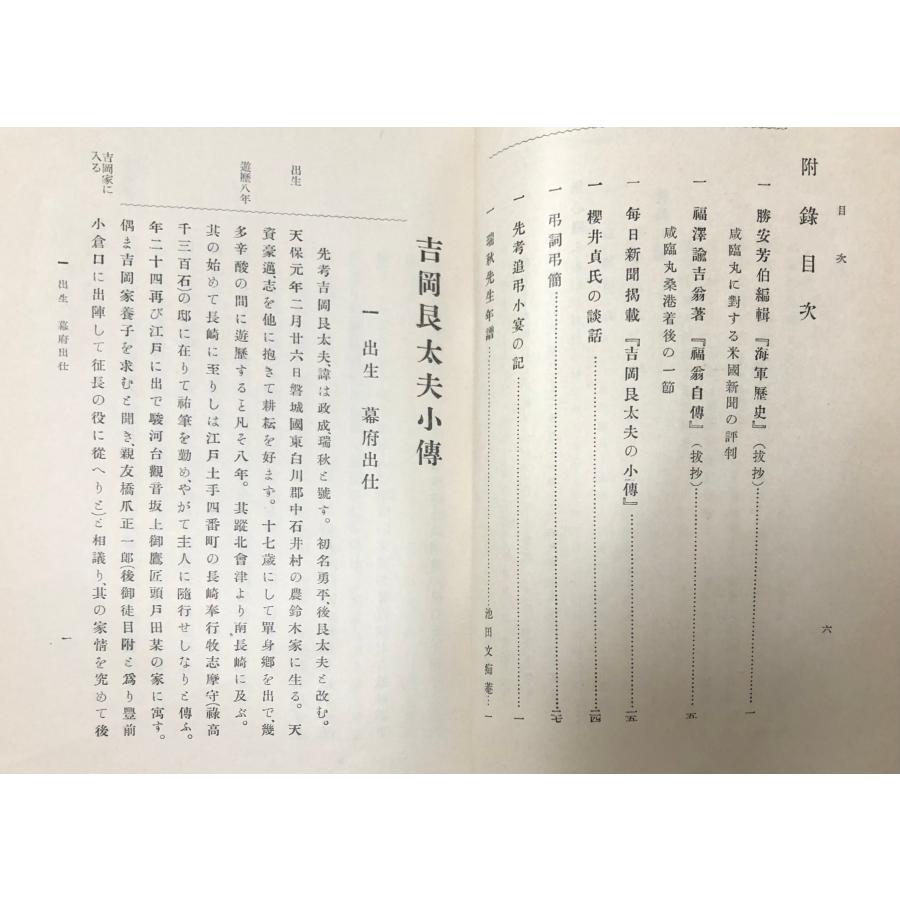 目次
六
附錄目次
一 勝安芳伯編輯『海軍歷史』(拔抄)………一
咸臨丸に對する米國新聞の評判
一 福澤諭吉翁著『福翁自傳』(拔抄)………五
咸臨丸桑港着後の一節
一 每日新聞揭載『吉岡艮太夫の小傳』………一五
一 櫻井貞氏の談話………二四
一 弔詞弔簡………二七
一 先考追弔小宴の記………一
一 瑞秋先生年譜………池田文痴菴…一
吉岡艮太夫小傳
一 出生 幕府出仕
先考吉岡艮太夫諱は政成、瑞秋と號す。初名勇平、後艮太夫と改む。
出生
天保元年二月廿六日磐城國東白川郡中石井村の農鈴木家に生る。天
資豪邁志を他に抱きて耕耘を好まず。十七歲にして單身鄉を出で、幾
遊歷八年
多辛酸の間に遊歷すること凡そ八年。其蹤北會津より南長崎に及ぶ。
其の始めて長崎に至りしは江戶土手四番町の長崎奉行牧志摩守(祿高
千三百石)の邸に在りて祐筆を勤め、やがて主人に隨行せしなりと傳ふ。
年二十四再び江戶に出で駿河台觀音坂上御鷹匠頭戶田某の家に寓す。
偶ま吉岡家養子を求むと聞き、親友橋爪正一郎(後御徒目附と爲り豐前
吉岡家に
入る
小倉口に出陣して征長の役に從へりと)と相議り、其の家情を究めて後
一 出生 幕府出仕
一